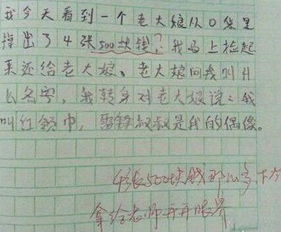 我今天看到一个老大娘从口袋里
掉出了4张500块钱?我马上捡起
来还给老大娘、老大娘问我叫什
么名字,我转身对老大娘说:我
叫红领巾,雷锋叔叔是我的偶像。
4张500块钱那么多,下次
拿给老师开开眼界